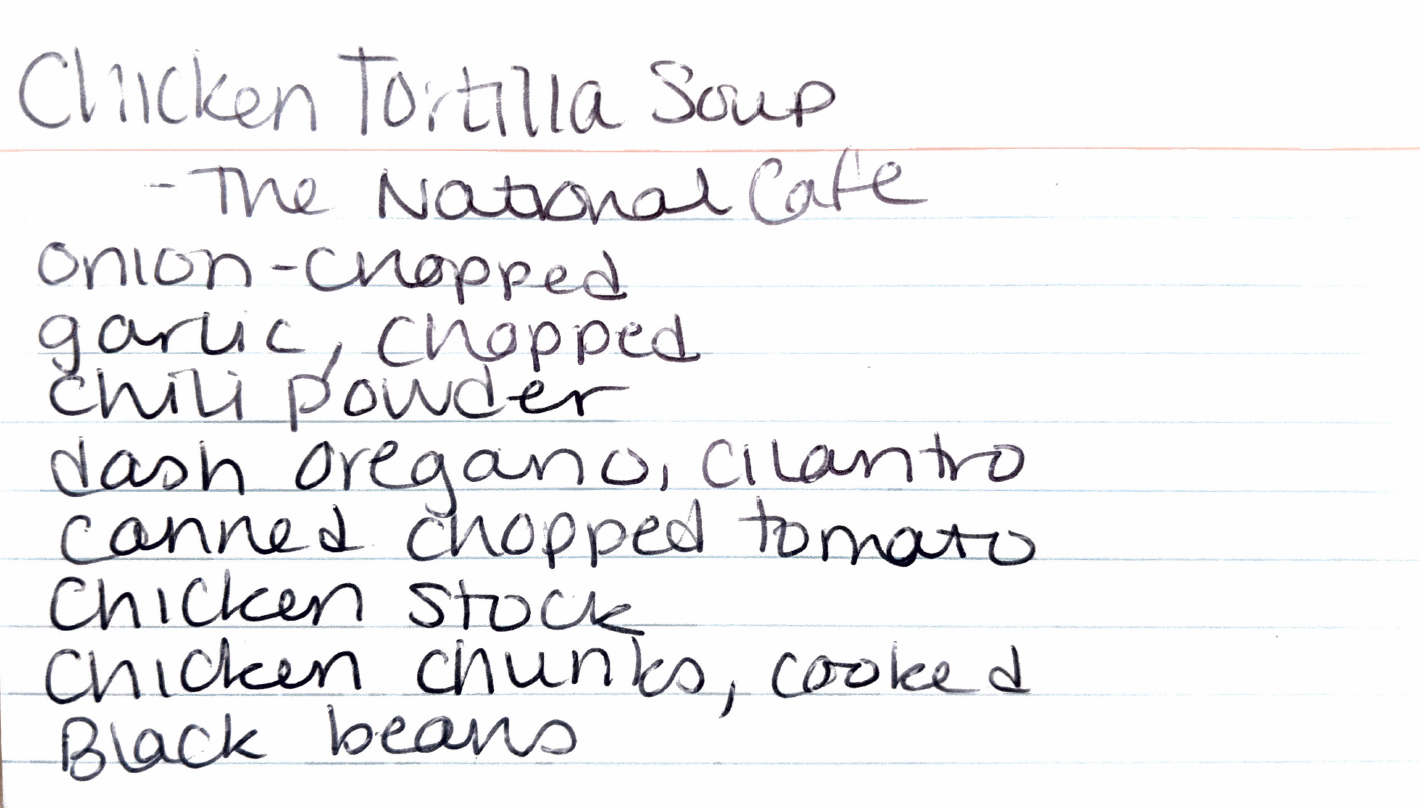 Chicken Tortilla Soup
- The National Cafe
onion - chopped
garlic, chopped
chili powder
dash oregano, cilantro
canned chopped tomato
Chicken stock
Chicken chunks, cooked
Black beans